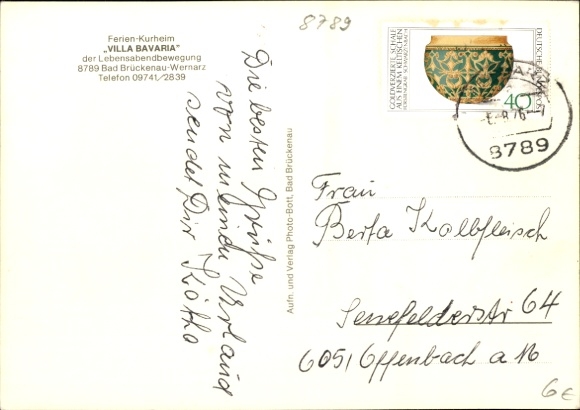 8789
Ferien-Kurheim
„VILLA BAVARIA"
der Lebensabendbewegung
8789 Bad Brückenau-Wernarz
Telefon 09741/2839
Die besten Grüße
von meinem Urlaub
sendet Dir Käthe
Aufn. und Verlag Photo-Bott, Bad Brückenau
GOLDVERZIERTE SCHALE
AUS EINEM KELTISCHEN
DEUTSCHE BUNDESPOST
40
8789
Frau
Berta Kolbfleisch
Senefelderstr 64
6051 Offenbach a M
6€